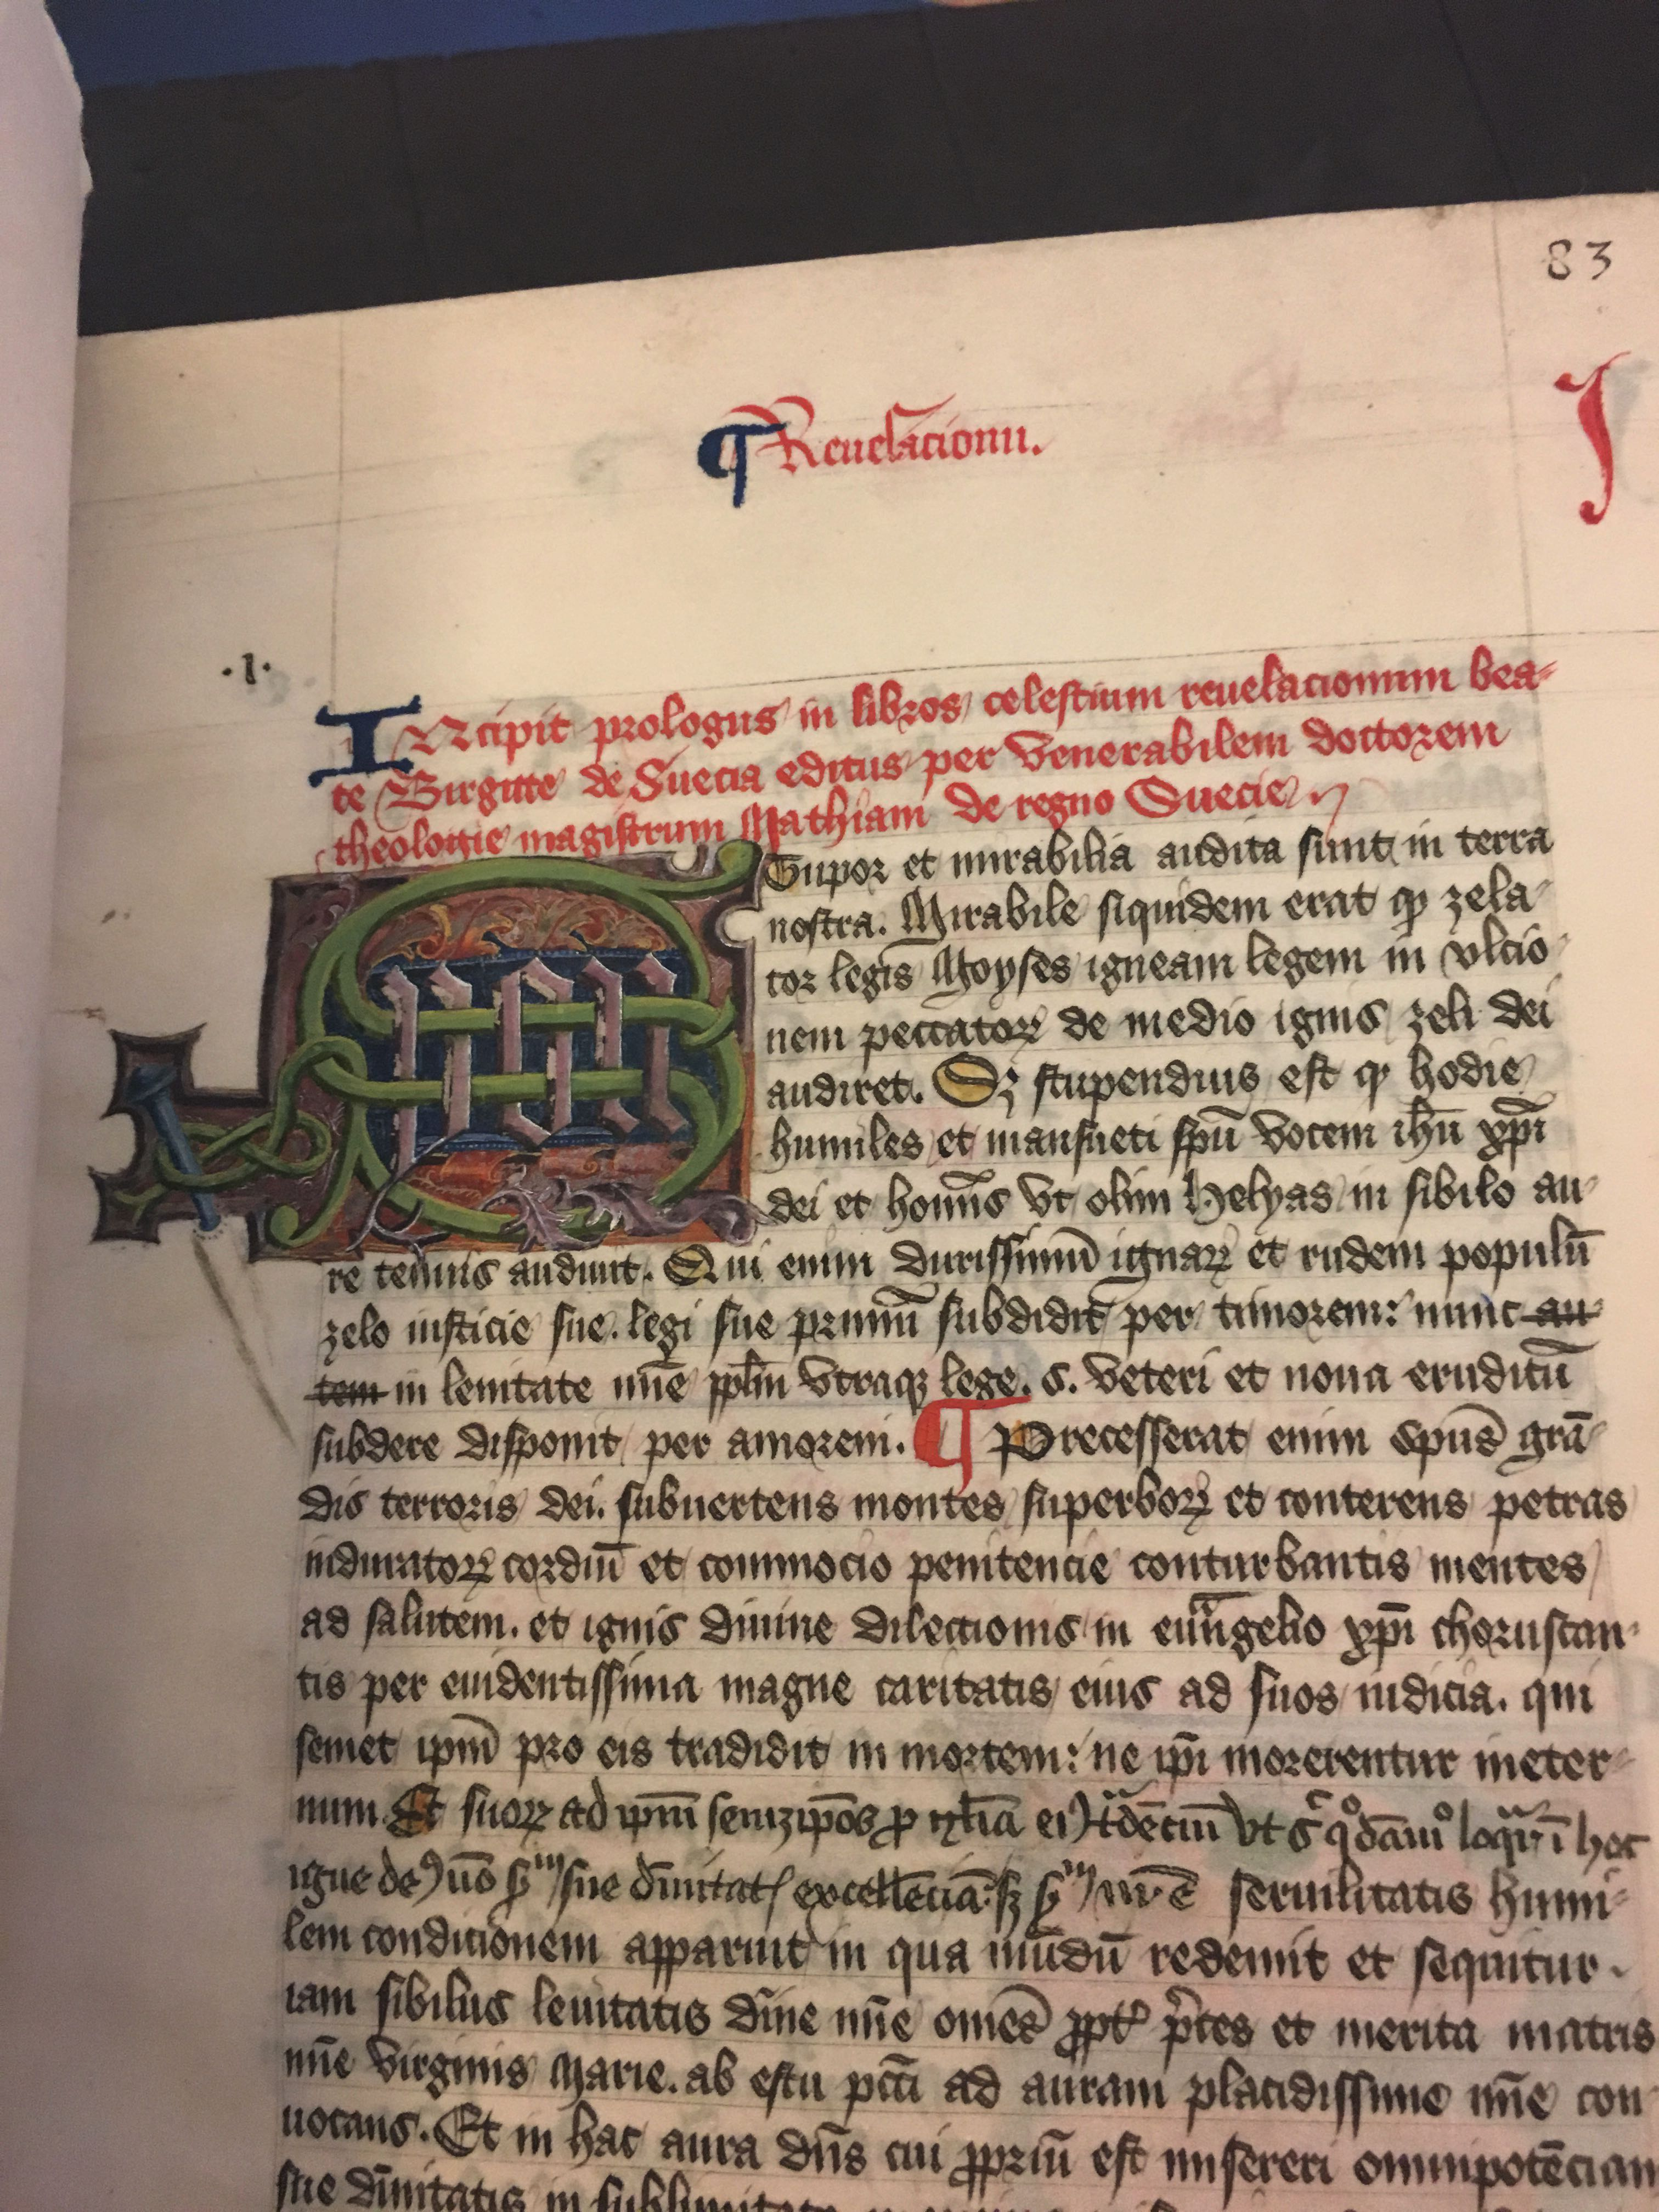 83
¶ Reuelacionū.
I
.1.
INcipit prologus in libros celestium reuelacionum bea-
te Birgitte de Suecia editus per venerabilem doctorem
theologie magistrum Mathiam de regno Suecie
Stupor et mirabilia audita sunt in terra
nostra. Mirabile siquidem erat ꝙ zela-
tor legis Moyses igneam legem in vlcio-
nem peccatoꝝ de medio ignis zeli dei
audiret. Sꝫ stupendius est ꝙ hodie
humiles et mansueti spū vocem ihū xp̄i
dei et homīs vt olim Helyas in sibilo au-
re tenuis audiunt. Qui enim durissimū ignaꝝ et rudem populū
zelo iusticie sue. legi sue primū subdidit per timorem: nunc au-
tem in lenitate nūc pplm̄ vtraqꝫ lege. s. veteri et noua eruditū
subdere disponit per amorem. ¶ Precesserat enim spūs grā-
dis terroris dei. subuertens montes superboꝝ et conterens petras
induratoꝝ cordiū et commocio penitencie conturbantis mentes
ad salutem. et ignis diuine dilectionis in euāngelio xp̄i choruscan-
tis per euidentissima magne caritatis eius ad suos iudicia. qui
semet ipm̄ pro eis tradidit in mortem: ne ip̄i morerentur ineter-
num. Et suoꝝ ad ipm̄ vt hoc
igne sue excellēciā: sꝫ seruilitatis humi-
lem condicionem apparuit in qua mūdū redemit et sequitur.
iam sibilus lenitatis diuīe nūc omēs ꝓpt͛ p̄ces et merita matris
sue virginis Marie. ab estu pctī ad auram placidissime nūc con-
uocans. Et in hac aura dn̄s cui ꝓpriū est misereri omnipotēciam
sue diuīnitatis in sublimitate